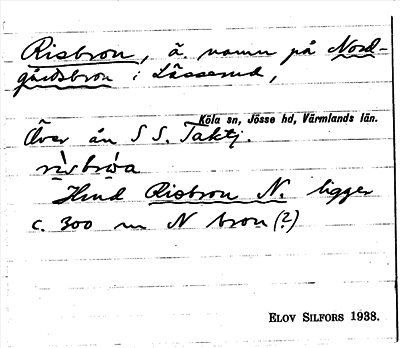 Risbron, ä. namn på Nord-
gårdsbron i Lässerud,
Köla sn, Jösse hd, Värmlands län.
Över ån S S. Taktj.
rìsbrωa
Hmd Risbron N. ligger
c. 300 m N bron (?)
ELOV SILFORS 1938.